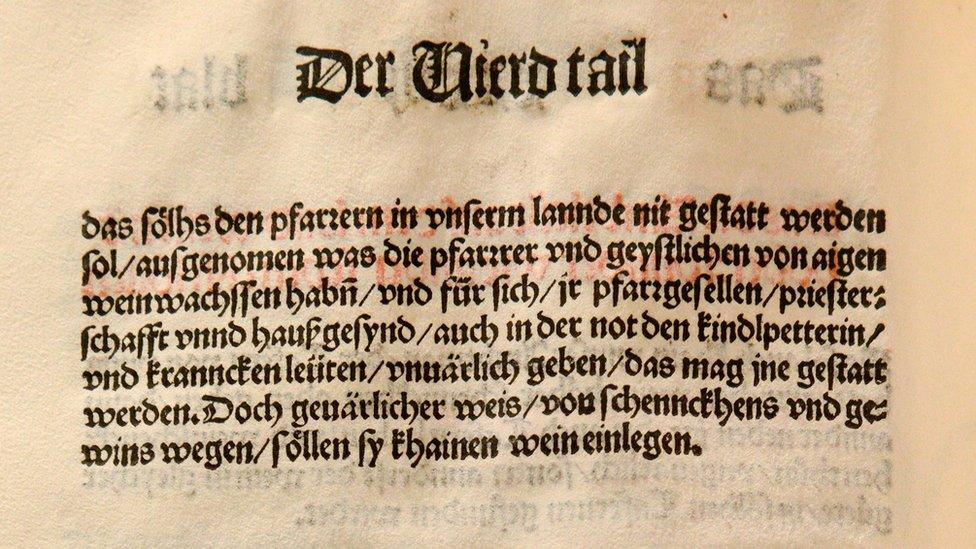 Der Vierd tail
das sölhs den pfarrern in vnserm lannde nit gestatt werden
sol/ausgenomen was die pfarrer vnd geystlichen von aigen
weinwachssen habñ/vnd für sich/jr pfarrgesellen/priester⸗
schafft vnnd haußgesynd/auch in der not den kindlpetterin/
vnd kranncken leüten/vnuärlich geben/das mag jne gestatt
werden. Doch geuärlicher weis/von schennckhens vnd ge⸗
wins wegen/söllen sy khainen wein einlegen.